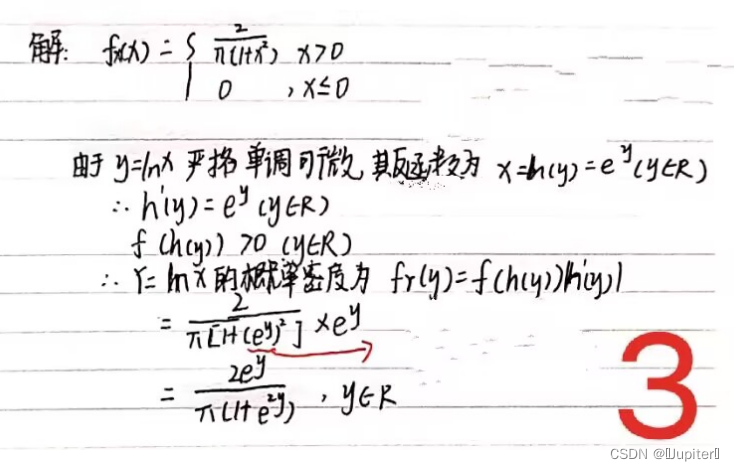 解: fx(x) = { 2/π(1+x²) x>0
0 , x≤0
由于 y=lnx 严格单调可微,其反函数为 x=h(y)=e^y (y∈R)
∴ h'(y)=e^y (y∈R)
f(h(y))>0 (y∈R)
∴ Y=lnX的概率密度为 fY(y)=f(h(y))|h'(y)|
= 2/π[1+(e^y)²] ×e^y
= 2e^y/π(1+e^2y) , y∈R
3
CSDN @Jupiter